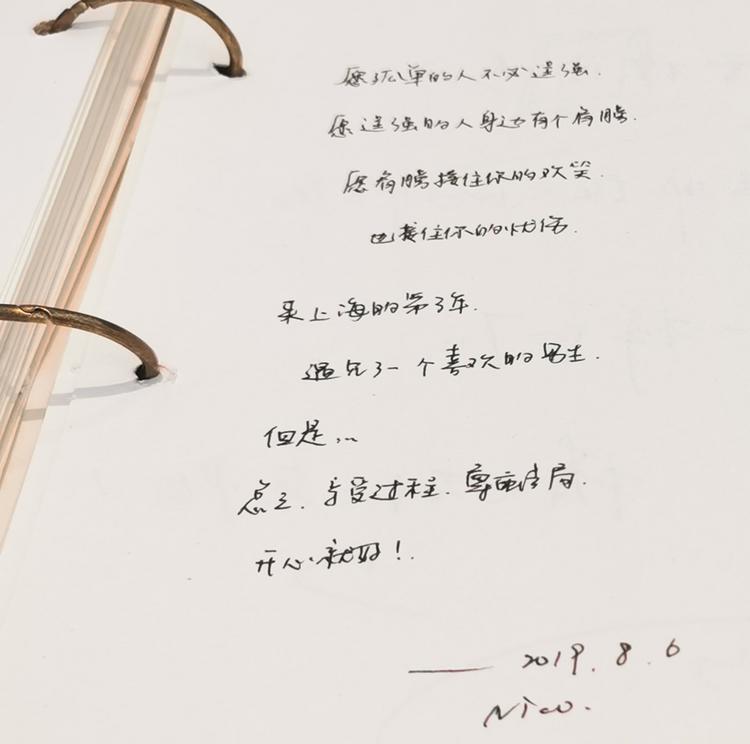 愿孤单的人不必逞强.
愿逞强的人身边有个肩膀.
愿肩膀接住你的欢笑.
也接住你的忧伤.
来上海的第3年.
遇见了一个喜欢的男生.
但是...
总之.享受过程.尊重结局.
开心就好!.
—— 2019.8.6
Nico.